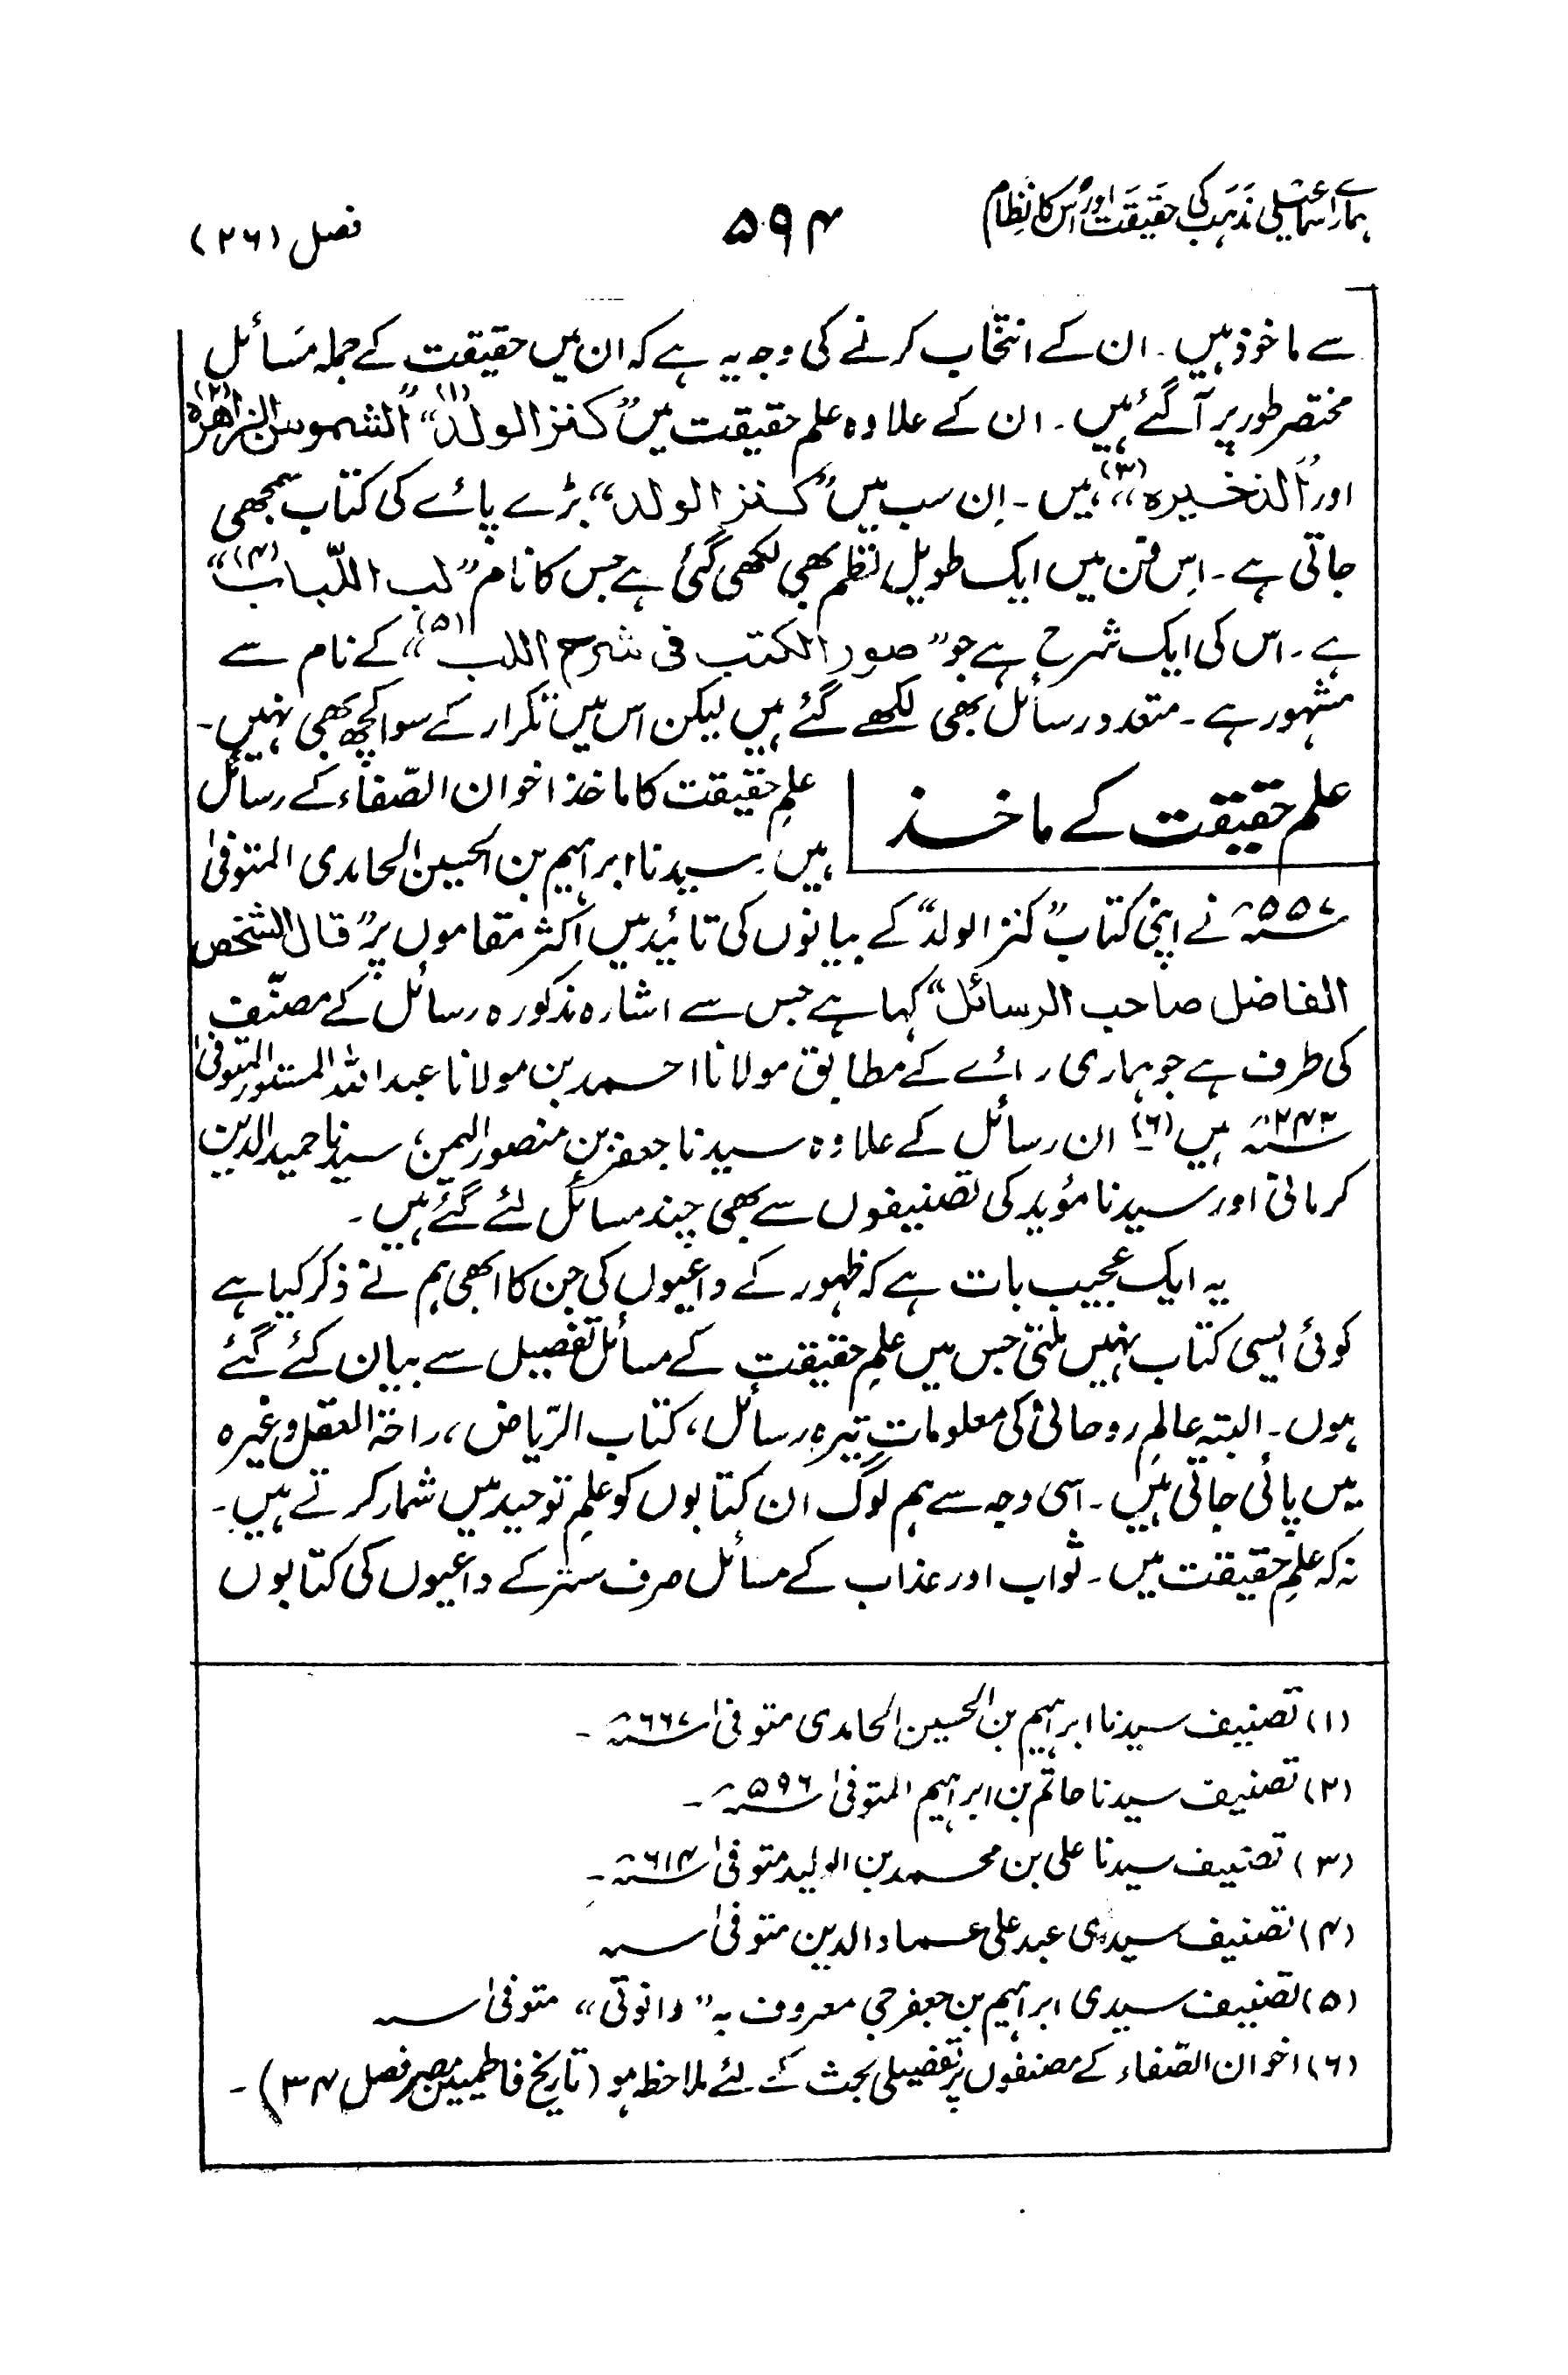 ہمارے اسماعیلی مذہب کی حقیقت اور اُس کا نظام
۵۹۴
فصل (۲۶)
سے ماخوذ ہیں۔ ان کے انتخاب کرنے کی وجہ یہ ہے کہ ان میں حقیقت کے جملہ مسَائل
مختصر طور پر آگئے ہیں۔ ان کے علاوہ علم حقیقت میں "کنز الولد" (۱) "الشموس الزاھرۃ" (۲)
اور "الذخیرہ" (۳) ہیں۔ اِن سب میں "کنز الولد" بڑے پائے کی کتاب سمجھی
جاتی ہے۔ اِس فن میں ایک طویل نظم بھی لکھی گئی ہے جس کا نام "لب اللّباب" (۴)
ہے۔ اس کی ایک شرح ہے جو "صور الکتب فی شرح اللب" (۵) کے نام سے
مشہور ہے۔ متعدد رسائل بھی لکھے گئے ہیں لیکن اس میں تکرار کے سوا کچھ بھی نہیں۔
علم حقیقت کے ماخذ
علمِ حقیقت کا ماخذ اخوان الصّفاء کے رسائل
ہیں۔ سیدنا ابراہیم بن الحسین الحامدی المتوفیٰ
۵۵۷ھ نے اپنی کتاب "کنز الولد" کے بیانوں کی تائید میں اکثر مقاموں پر "قال الشخص
الفاضل صاحب الرسائل" کہا ہے جس سے اشارہ مذکورہ رسائل کے مصنّف
کی طرف ہے جو ہماری رائے کے مطابق مولانا احمد بن مولانا عبد اللہ المستور المتوفیٰ
۲۴۳ھ ہیں (۶) ان رسائل کے علاوہ سیدنا جعفر بن منصور الیمن، سیدنا حمید الدین
کرمانی اور سیدنا مؤید کی تصنیفوں سے بھی چند مسائل لئے گئے ہیں۔
یہ ایک عجیب بات ہے کہ ظہور کے داعیوں کی جن کا ابھی ہم نے ذکر کیا ہے
کوئی ایسی کتاب نہیں ملتی جس میں علمِ حقیقت کے مسائل تفصیل سے بیان کئے گئے
ہوں۔ البتہ عالمِ روحانی کی معلومات تیرہ رسائل، کتاب الرّیاض، راحۃ العقل وغیرہ
میں پائی جاتی ہیں۔ اسی وجہ سے ہم لوگ ان کتابوں کو علمِ توحید میں شمار کرتے ہیں۔
نہ کہ علمِ حقیقت میں۔ ثواب اور عذاب کے مسائل صرف ستر کے داعیوں کی کتابوں
(۱) تصنیف سیدنا ابراہیم بن الحسین الحامدی متوفیٰ ۶۶۷ھ۔
(۲) تصنیف سیدنا حاتم بن ابراہیم المتوفیٰ ۵۹۶ھ۔
(۳) تصنیف سیدنا علی بن محمد بن الولید متوفیٰ ۶۱۴ھ۔
(۴) تصنیف سیدی عبد علی عماد الدین متوفیٰ سنہ
(۵) تصنیف سیدی ابراہیم بن جعفر جی معروف بہ "دانوتی" متوفیٰ سنہ
(۶) اخوان الصّفاء کے مصنفوں پر تفصیلی بحث کے لئے ملاحظہ ہو (تاریخ فاطمیین مصر فصل ۳۴)۔